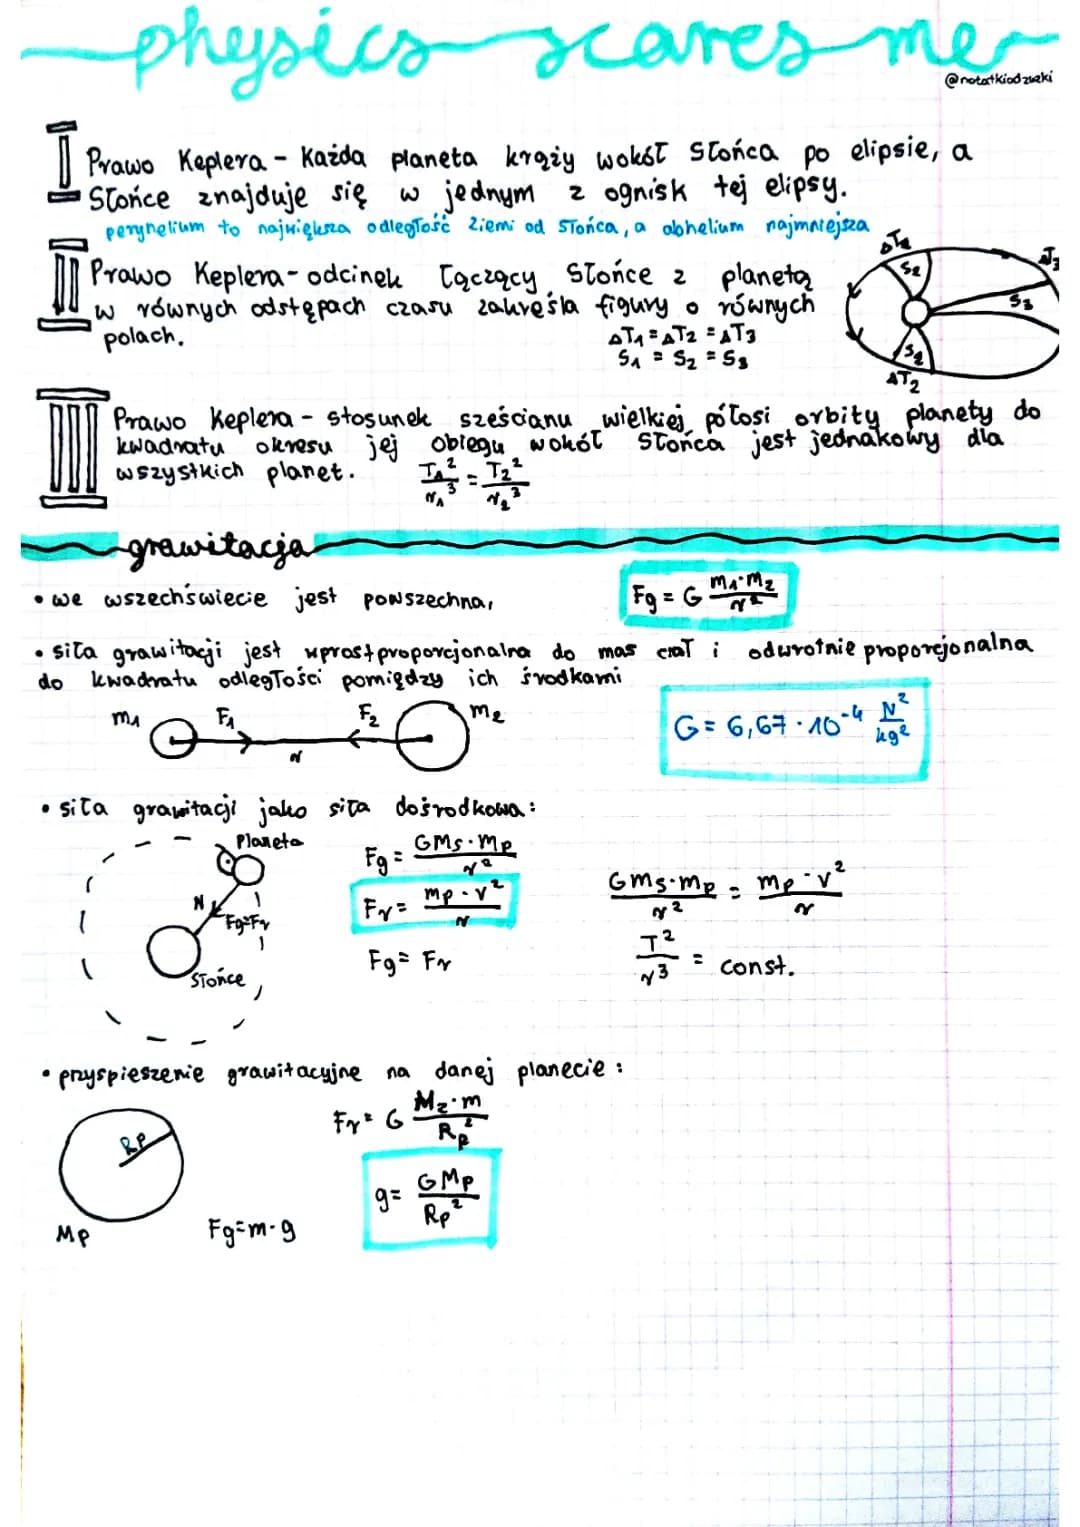 physics scares me
@notatkiodzuzki
I Prawo Keplera - Każda planeta krąży wokół Słońca po elipsie, a
Słońce znajduje się w jednym z ognisk tej elipsy.
peryhelium to największa odległość Ziemi od Słońca, a abhelium najmniejsza
II Prawo Keplera - odcinek łączący Słońce z planetą
w równych odstępach czasu zakreśla figury o równych
polach.
ΔT1 = ΔT2 = ΔT3
S1 = S2 = S3
S2
S3
S2
ΔT2
III Prawo Keplera - stosunek sześcianu wielkiej półosi orbity planety do
kwadratu okresu jej obiegu wokół Słońca jest jednakowy dla
wszystkich planet.
T1²/r1³ = T2²/r2³
grawitacja
• we wszechświecie jest powszechna,
Fg = G m1·m2/r²
• siła grawitacji jest wprostproporcjonalna do mas ciał i odwrotnie proporcjonalna
do kwadratu odległości pomiędzy ich środkami
m1 F1 F2 m2
r
G = 6,67 · 10⁻⁴ N²/kg²
• siła grawitacji jako siła dośrodkowa:
Planeta
N
Fg=Fr
Słońce
Fg = GMs·Mp/r²
Fr = mp·v²/r
Fg = Fr
GMs·mp/r² = mp·v²/r
T²/r³ = const.
• przyspieszenie grawitacyjne na danej planecie:
Rp
Mp
Fr = G Mz·m/Rp²
g = GMp/Rp²
Fg=m·g